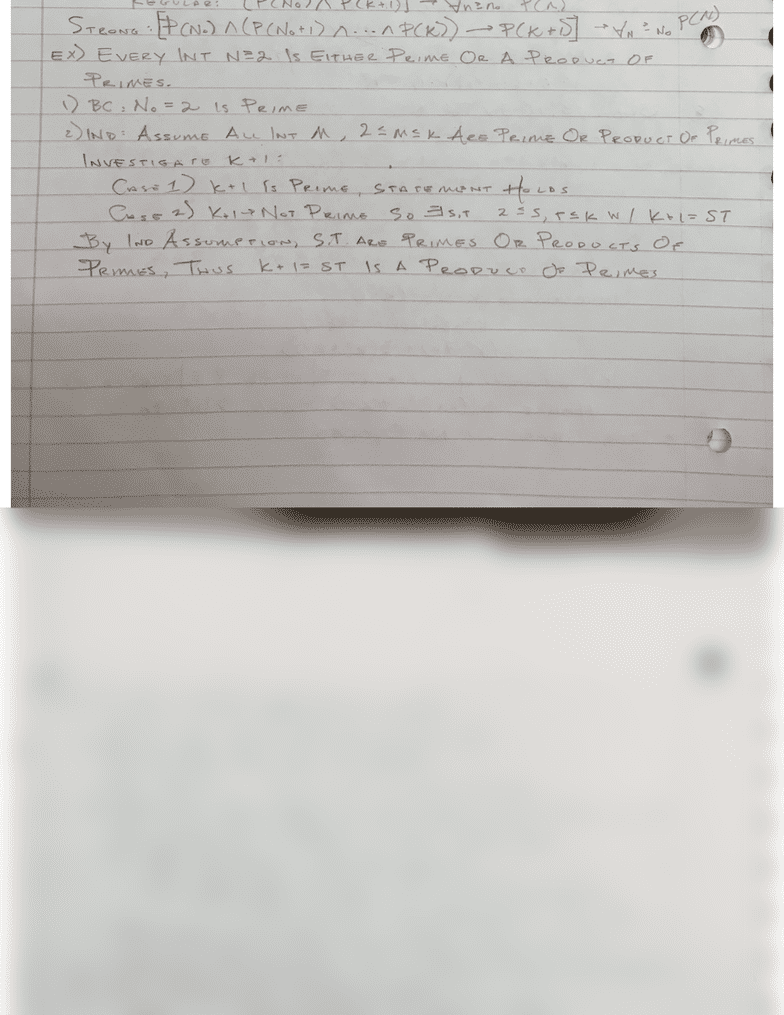 REGULAR: [P(N₀) ∧ P(k+1)] → ∀n≥n₀ P(n)
STRONG: [P(N₀) ∧ (P(N₀+1) ∧ ... ∧ P(K)) → P(K+1)] → ∀N ≥ N₀ P(N)
EX) EVERY INT N≥2 IS EITHER PRIME OR A PRODUCT OF
PRIMES.
1) BC: N₀ = 2 IS PRIME
2) IND: ASSUME ALL INT M, 2 ≤ M ≤ K ARE PRIME OR PRODUCT OF PRIMES
INVESTIGATE K+1:
CASE 1) K+1 IS PRIME, STATEMENT HOLDS
CASE 2) K+1 → NOT PRIME SO ∃ S,T 2 ≤ S, T ≤ K W/ K+1 = ST
BY IND ASSUMPTION, S,T ARE PRIMES OR PRODUCTS OF
PRIMES, THUS K+1 = ST IS A PRODUCT OF PRIMES